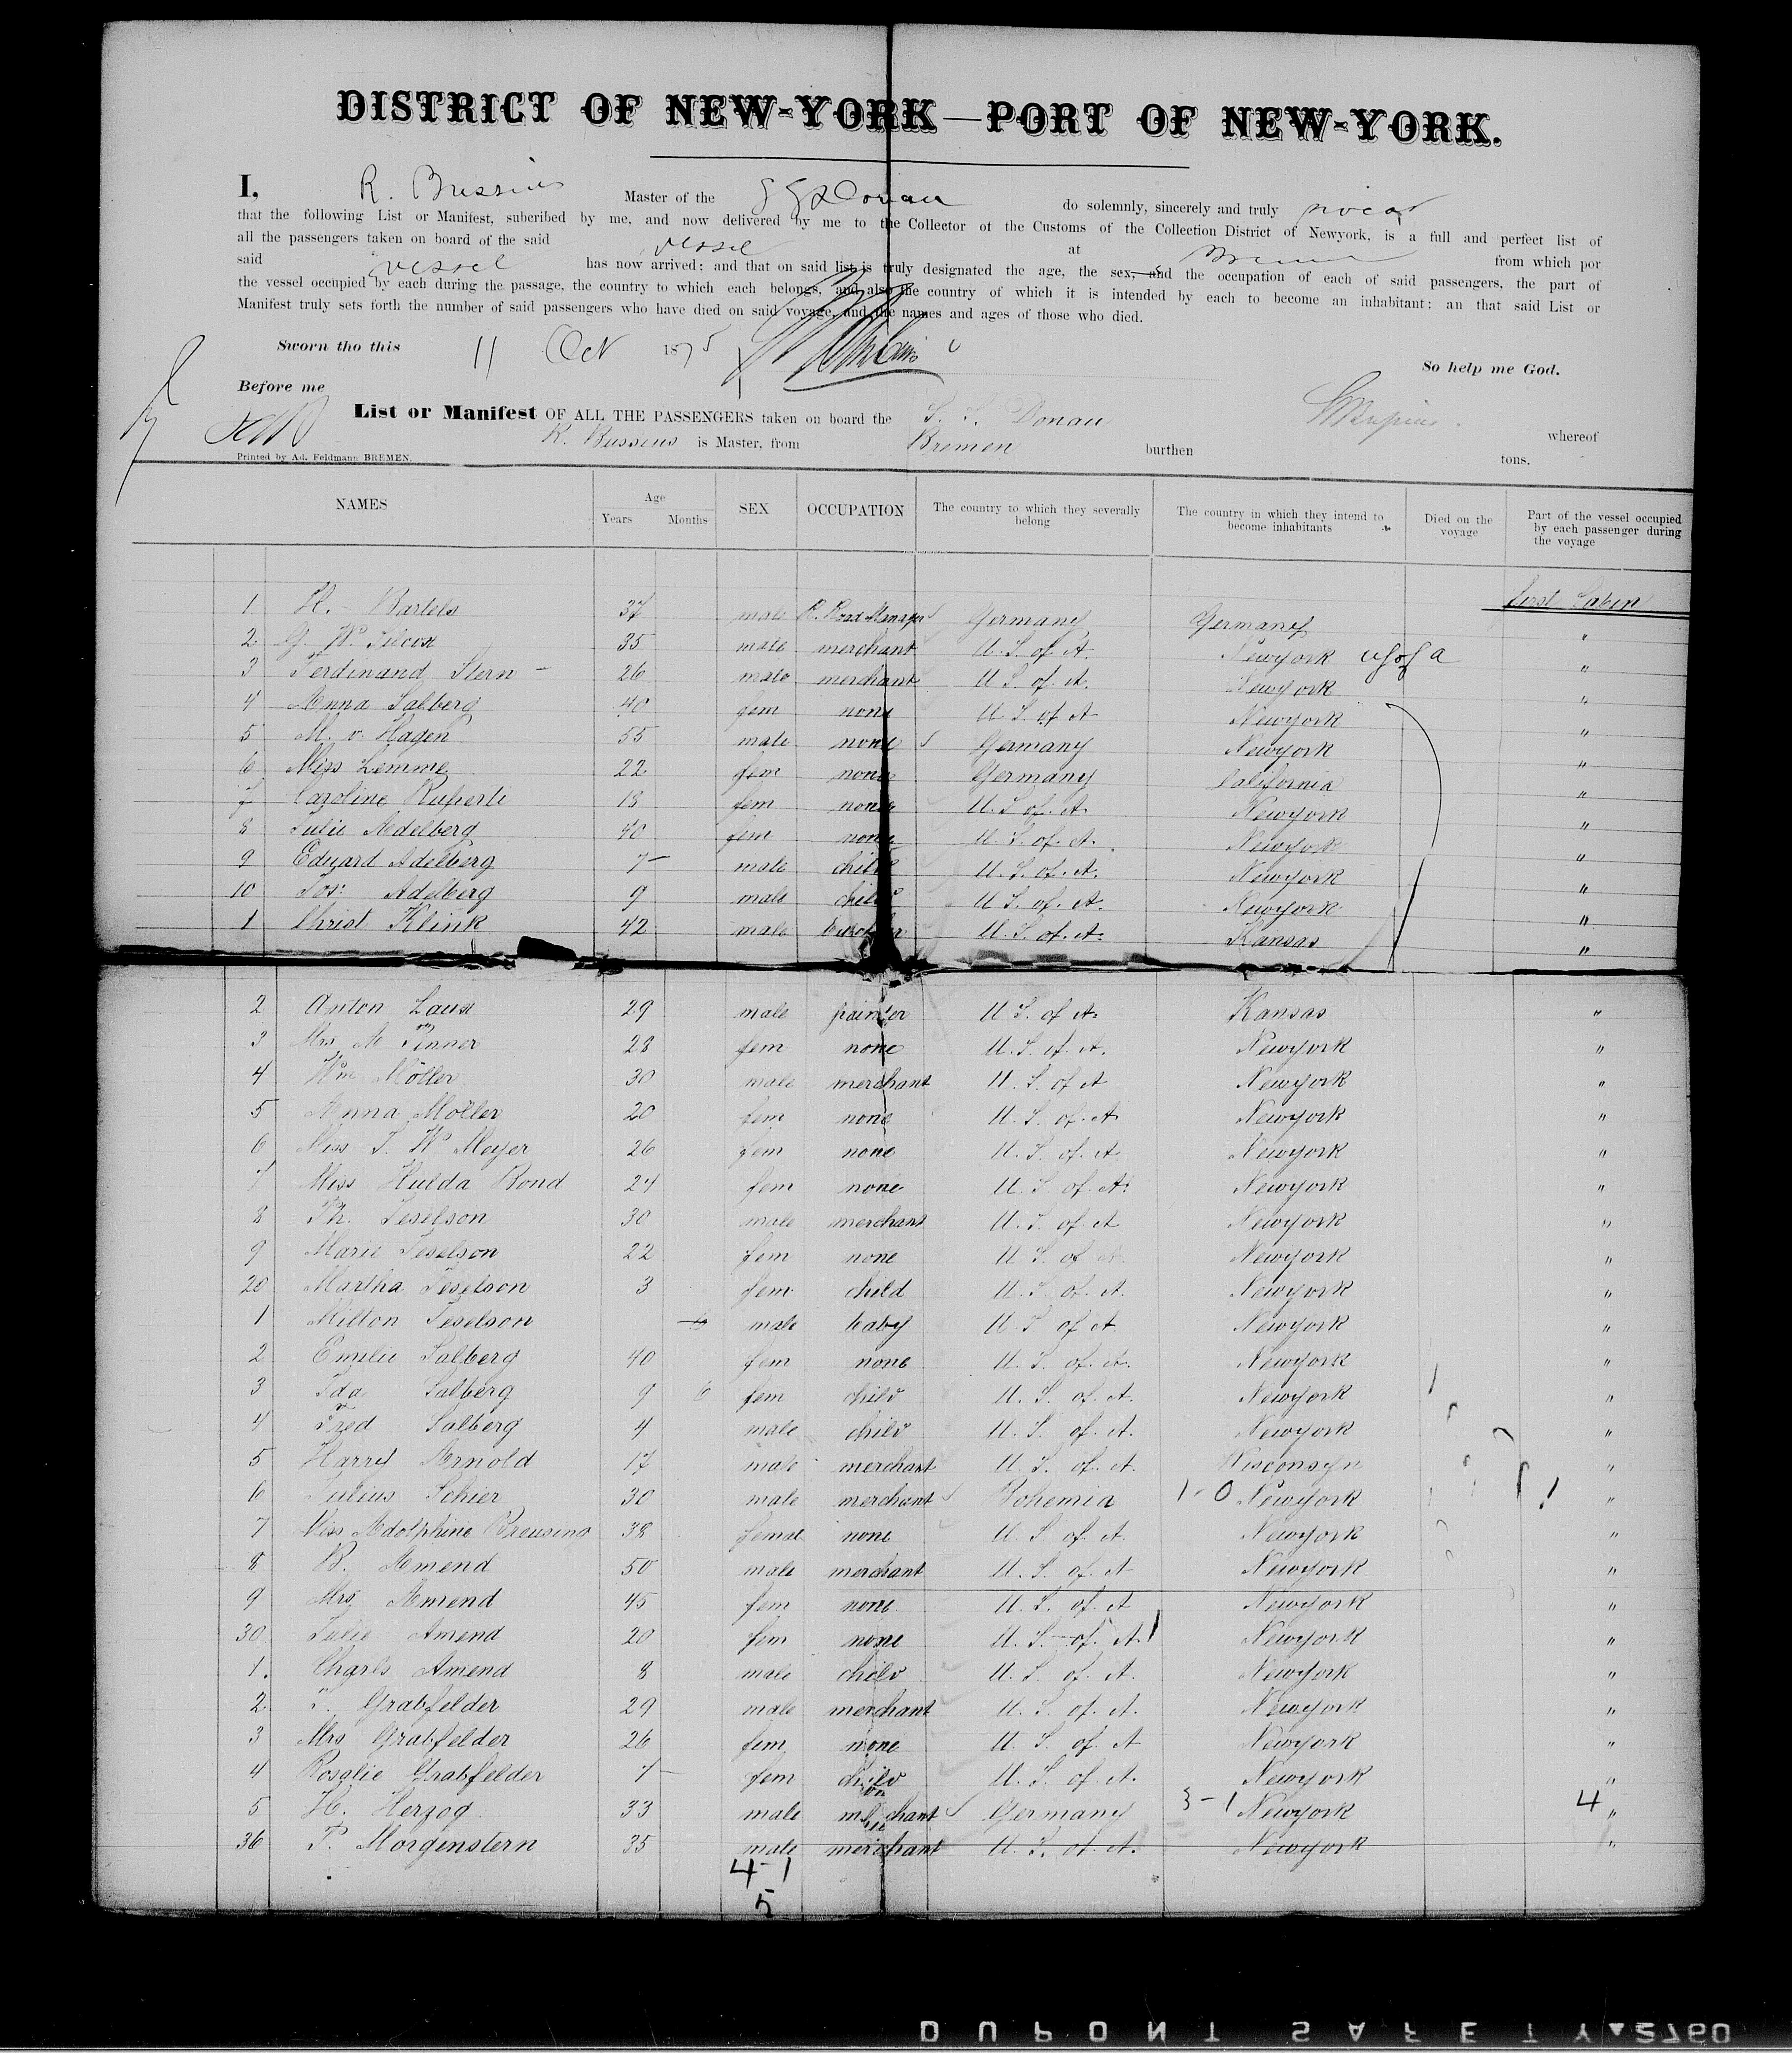 DISTRICT OF NEW-YORK—PORT OF NEW-YORK.
I, R. Bussius Master of the S S Donau do solemnly, sincerely and truly swear
that the following List or Manifest, subcribed by me, and now delivered by me to the Collector of the Customs of the Collection District of Newyork, is a full and perfect list of
all the passengers taken on board of the said vessel at Bremen from which por
said vessel has now arrived; and that on said list is truly designated the age, the sex, and the occupation of each of said passengers, the part of
the vessel occupied by each during the passage, the country to which each belongs, and also the country of which it is intended by each to become an inhabitant: an that said List or
Manifest truly sets forth the number of said passengers who have died on said voyage, and the names and ages of those who died.
Sworn tho this 11 Oct 1875
So help me God.
Before me
List or Manifest OF ALL THE PASSENGERS taken on board the S. S. Donau whereof
R. Bussius is Master, from Bremen burthen tons.
Printed by Ad. Feldmann BREMEN.
NAMES Age Years Months SEX OCCUPATION The country to which they severally belong The country in which they intend to become inhabitants Died on the voyage Part of the vessel occupied by each passenger during the voyage
first Cabin
1 H. Bartels 37 male R. Road Manager Germany Germany "
2 G. W. 35 male merchant U. S. of A. Newyork U S of A "
3 Ferdinand Stern 26 male merchant U S. of. A. Newyork "
4 Anna Salberg 40 fem none U. S. of A Newyork "
5 M. v. Hagen 55 male none Germany Newyork "
6 Miss Lemme 22 fem none Germany California "
7 Caroline Ruperti 18 fem none U. S of A. Newyork "
8 Julie Adelberg 40 fem none U. S. of. A. Newyork "
9 Eduard Adelberg 7 male child U. S. of. A. Newyork "
10 Jos: Adelberg 9 male child U S. of. A. Newyork "
1 Christ Klink 42 male U. S. of. A. Kansas "
2 Anton Laux 29 male painter U S. of A. Kansas "
3 Mrs M Tinner 28 fem none U. S. of. A. Newyork "
4 Wm Möller 30 male merchant U. S. of A Newyork "
5 Anna Möller 20 fem none U. S. of. A Newyork "
6 Miss J. W. Meyer 26 fem none U. S. of. A Newyork "
7 Miss Hulda Bond 24 fem none U. S of. A. Newyork "
8 Th. Teselson 30 male merchant U. S. of A Newyork "
9 Marie Teselson 22 fem none U S. of A. Newyork "
20 Martha Teselson 3 fem child U. S. of. A. Newyork "
1 Milton Teselson 6 male baby U. S of A Newyork "
2 Emilie Salberg 40 fem none U. S. of. A. Newyork "
3 Ida Salberg 9 6 fem child U. S. of. A. Newyork "
4 Fred Salberg 4 male child U. S. of. A. Newyork "
5 Harry Arnold 17 male merchant U. S. of. A. Wisconsyn "
6 Julius Schier 30 male merchant Bohemia 1-0 Newyork "
7 Miss Adolphine Breusing 38 female none U. S of. A Newyork "
8 B. Amend 50 male merchant U. S. of. A Newyork "
9 Mrs Amend 45 fem none U. S. of. A Newyork "
30 Julie Amend 20 fem none U. S. of. A. Newyork "
1. Charls Amend 8 male child U. S. of. A. Newyork "
2 Grabfelder 29 male merchant U. S. of. A. Newyork "
3 Mrs Grabfelder 26 fem none U. S. of. A Newyork "
4 Rosalie Grabfelder 7 fem child U. S. of. A. Newyork "
5 H. Herzog 33 male merchant Germany 3-1 Newyork 4 "
36 P. Morgenstern 35 male merchant U. S. of. A. Newyork "
4-1
5
DUPONT SAFETY 2760